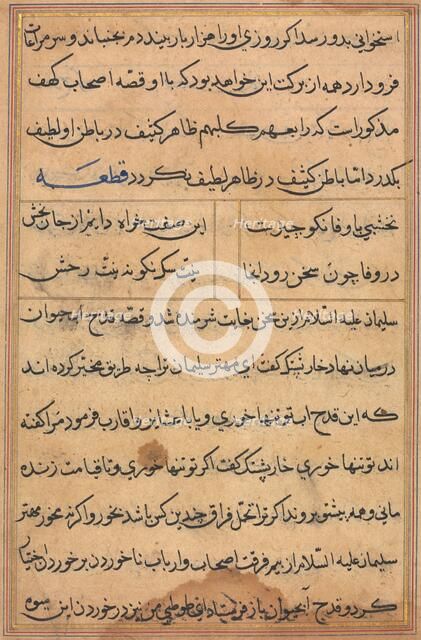 استخوانی بدو رسد اگر روزی او را هزار بار بیند دم بجنباند و سر مراعات
فرود آرد همه از برکت این خواهد بود که با او قصه اصحاب کهف
مذکور است که رابعهم کلبهم ظاهر کثیف در باطن او لطیف
بگذرد اما باطن کثیف در ظاهر لطیف نگردد قطعه
نخشبی با وفا نکو چیزیست
این صفت خواه دایم از جان بخش
در وفا چون سخن رود آنجا
سلیمان علیه السلام از این سخن بغایت شرمنده شد و قصه قدح آب حیوان
در میان نهاد خارپشتک گفت ای مهتر سلیمان ترا چه طریق مخیر کرده اند
که این قدح آب تو تنها خوری و یا با اقارب فرمود مرا گفته
اند تو تنها خوری خارپشتک گفت اگر تو تنها خوری و تا قیامت زنده
مانی و همه پیش تو بروند اگر ترا تحمل فراق چندین کس باشد بخور و اگر نه مخور مهتر
سلیمان علیه السلام از بیم فرقت اصحاب و ارباب ناخوردن بر خوردن اختیار
کرد و قدح آب حیوان باز فرستاد ای طوطی من نیز در خوردن این میوه
Heritage